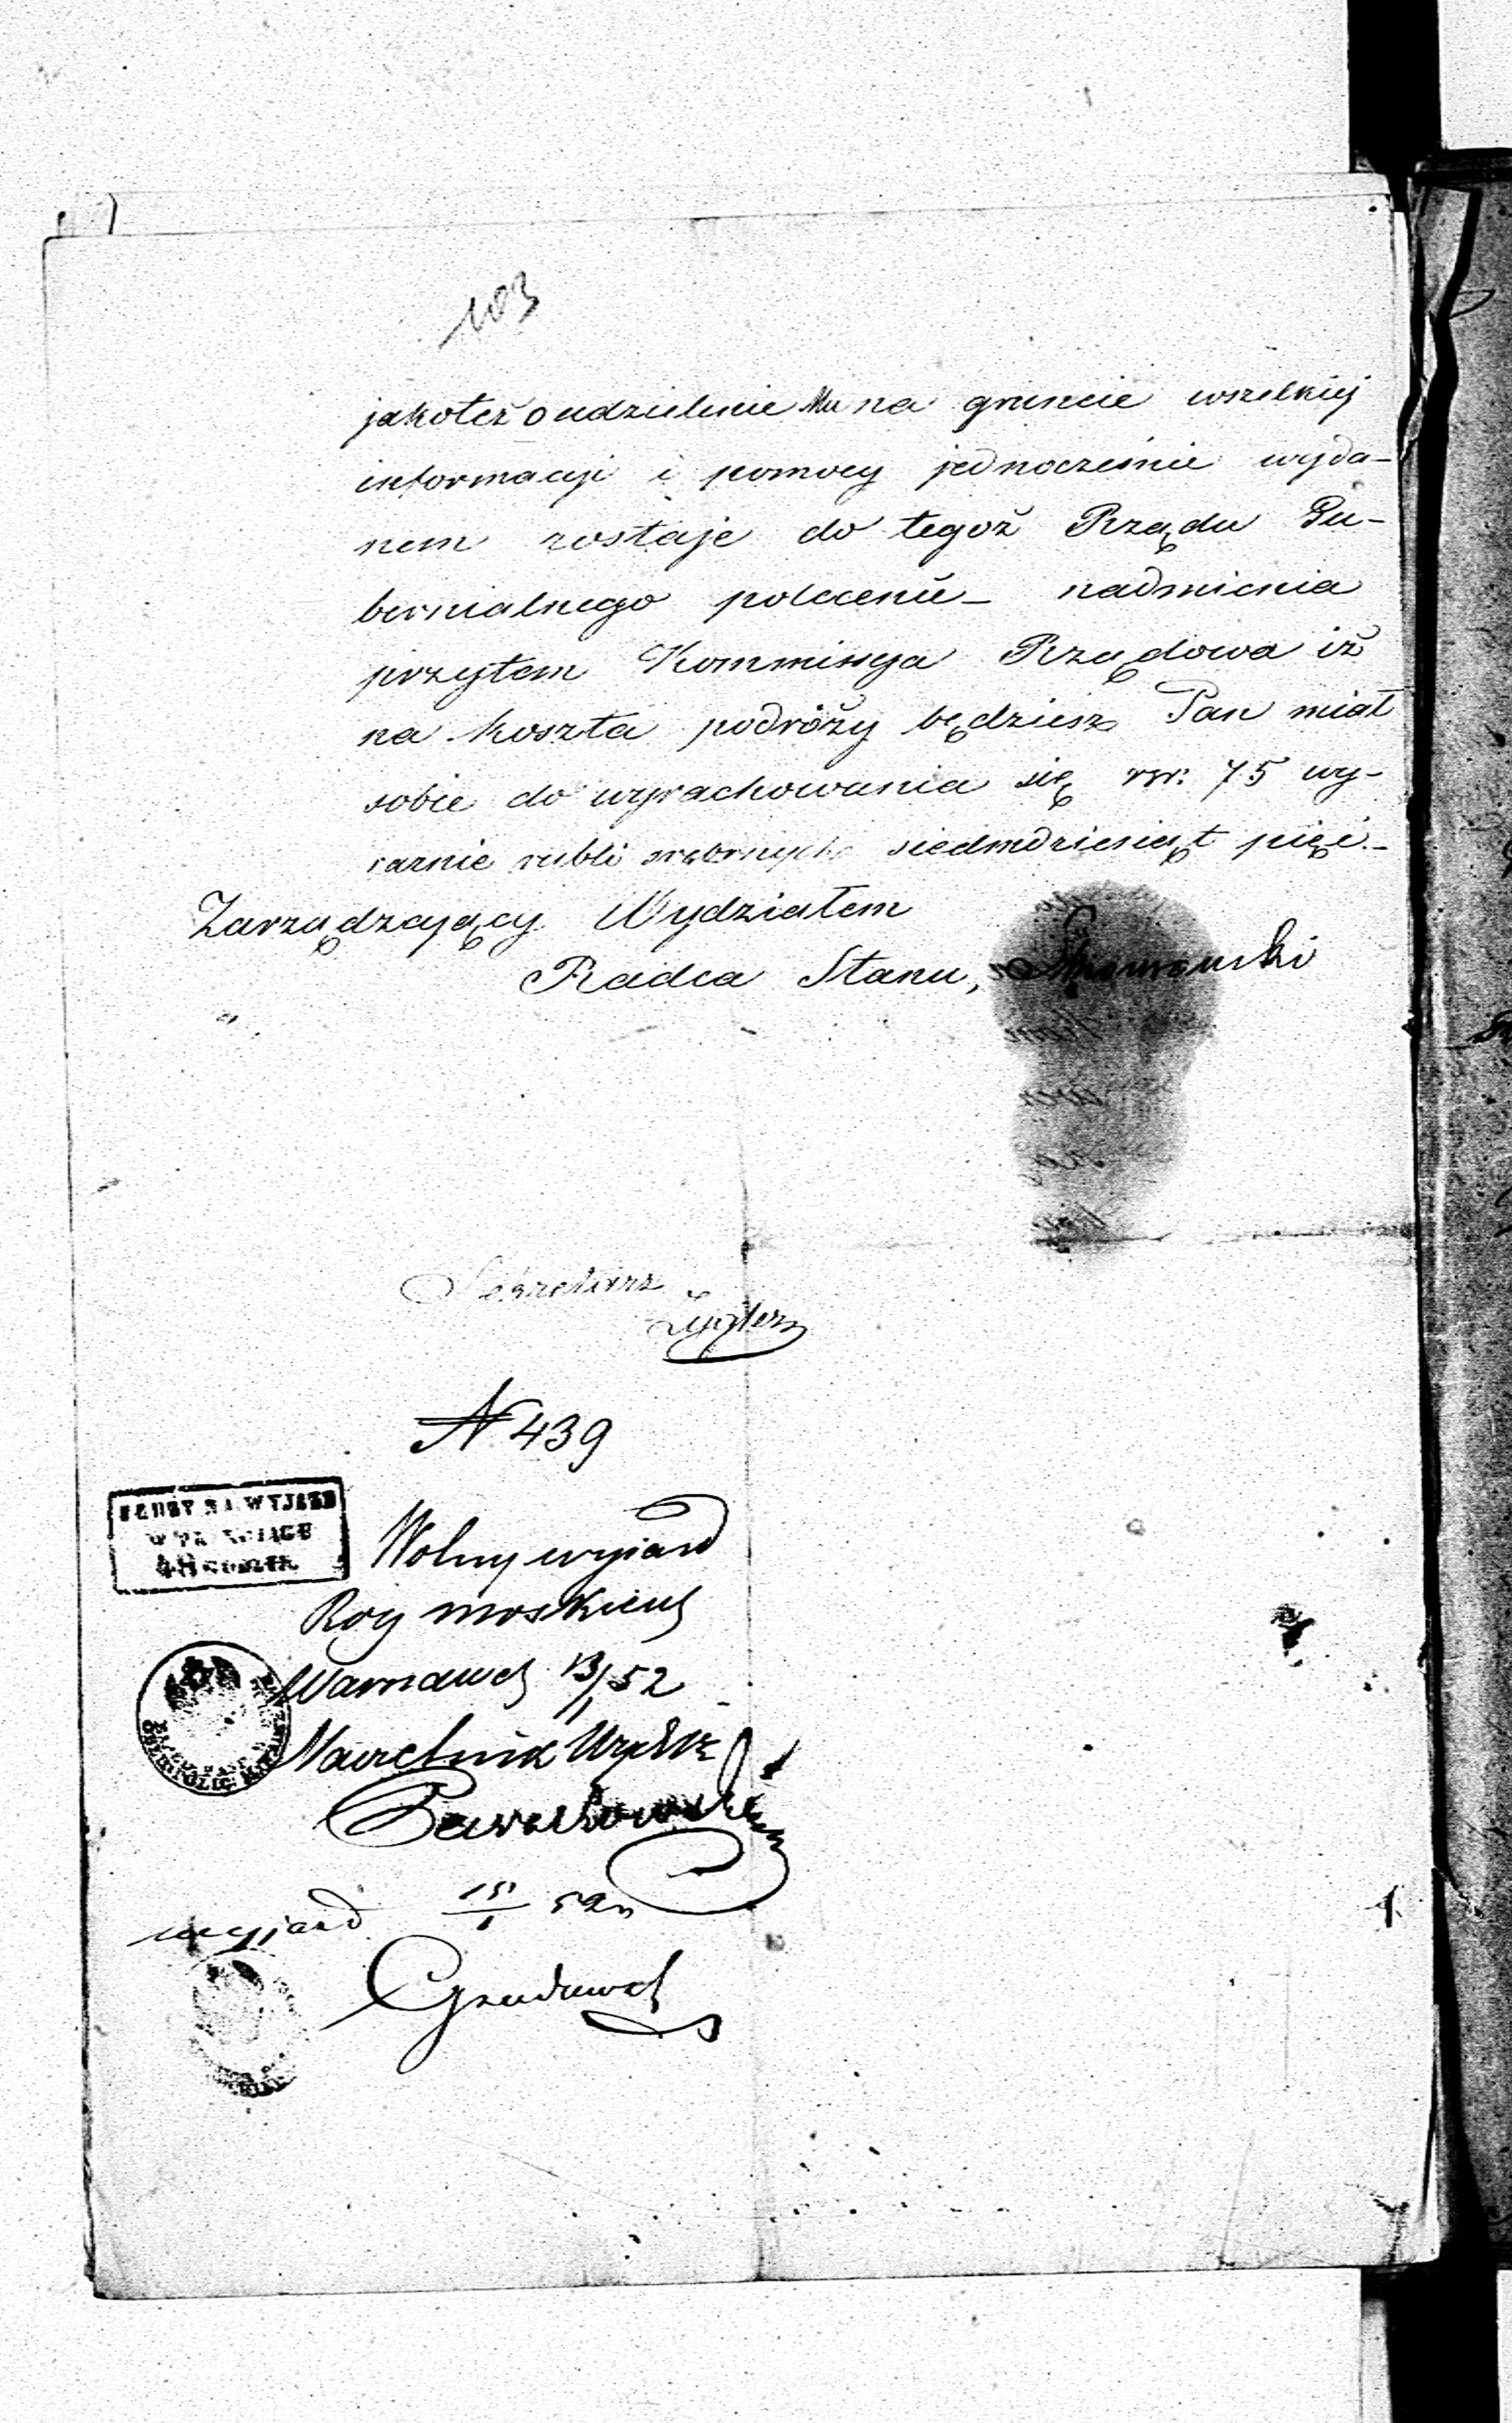 103
jakoteż o udzielenie Mu na gruncie wszelkiej
informacyi i pomocy jednocześnie wyda-
nem zostaje do tegoż Rządu Gu-
bernialnego polecenie — nadmienia
przytem Kommissya Rządowa iż
na koszta podróży będziesz Pan miał
sobie do wyrachowania się rsr: 75 wy-
raźnie rubli srebrnych siedmdziesiąt pięć.—
Zarządzający Wydziałem
Radca Stanu,
Sekretarz
N 439
WAŻNY NA WYJAZD
W PRZECIĄGU
48 GODZIN
Wolny wyjazd
Rog moskiews
Warszawa 13/1 52
Naczelnik
wyjazd 15/1 52